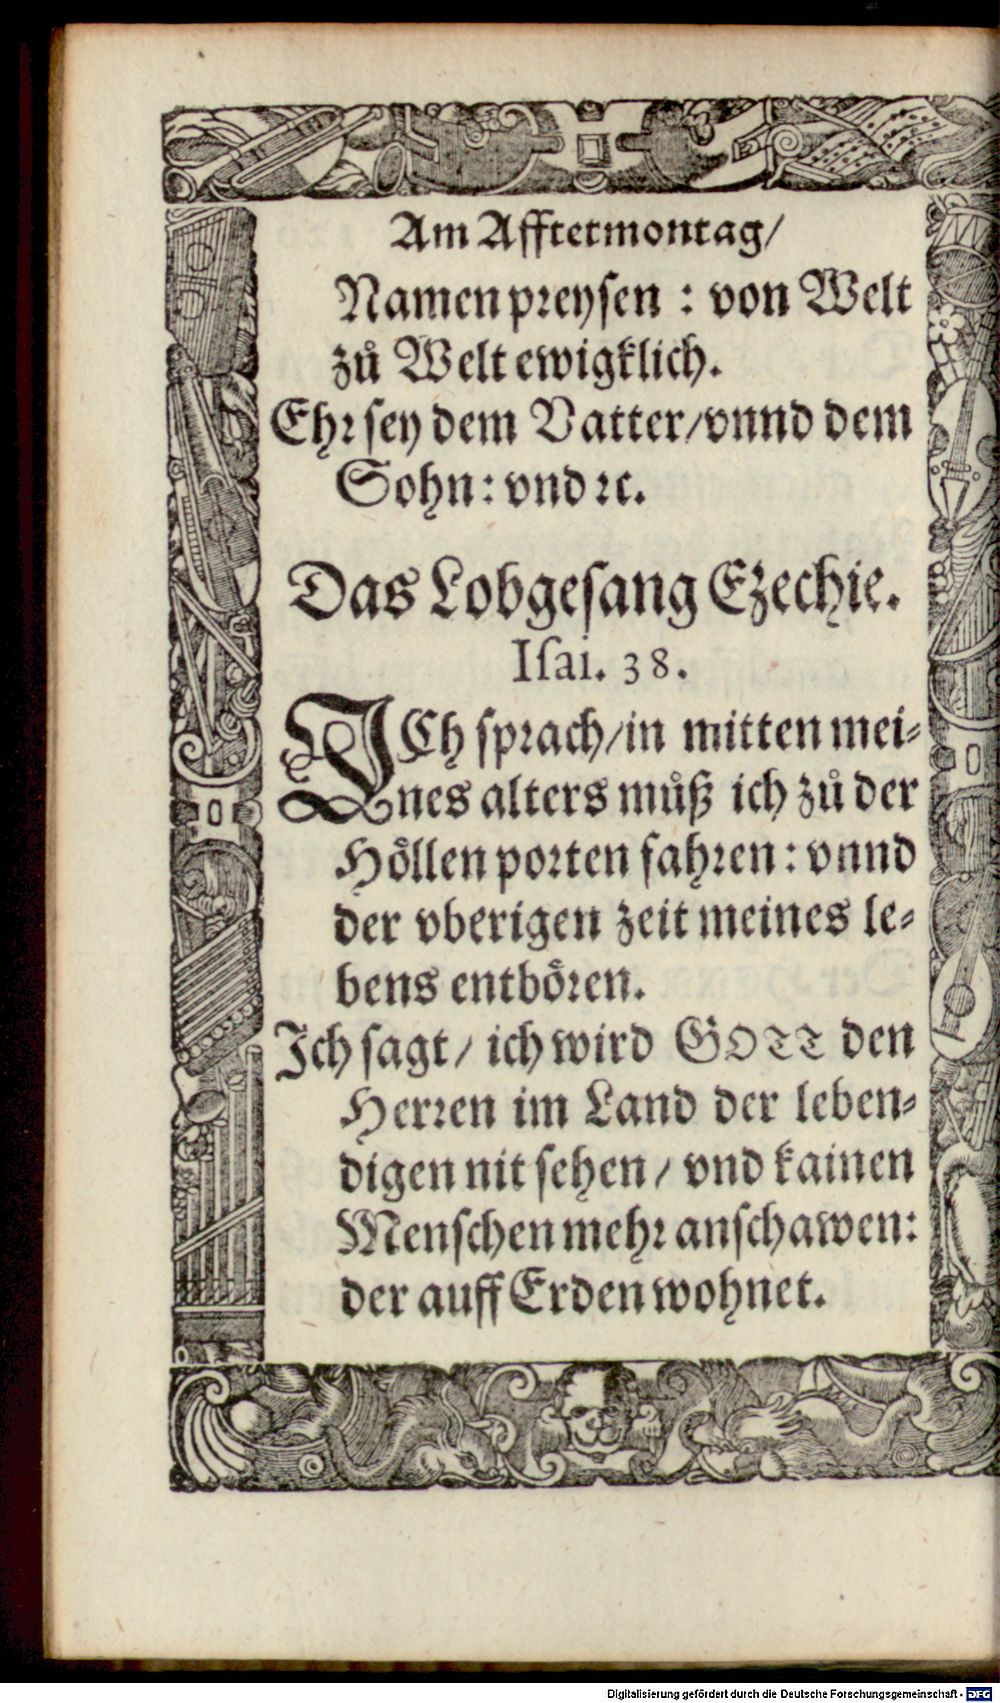 Am Afftermontag/
Namen preysen : von Welt
zů Welt ewigklich.
Ehr sey dem Vatter/vnnd dem
Sohn: vnd ꝛc.
Das Lobgesang Ezechie.
Isai. 38.
ICh sprach/in mitten mei⸗
nes alters můß ich zů der
Hoͤllen porten fahren: vnnd
der vberigen zeit meines le⸗
bens entboͤren.
Ich sagt/ ich wird GOTT den
Herren im Land der leben⸗
digen nit sehen/ vnd kainen
Menschen mehr anschawen:
der auff Erden wohnet.
Digitalisierung gefördert durch die Deutsche Forschungsgemeinschaft - DFG